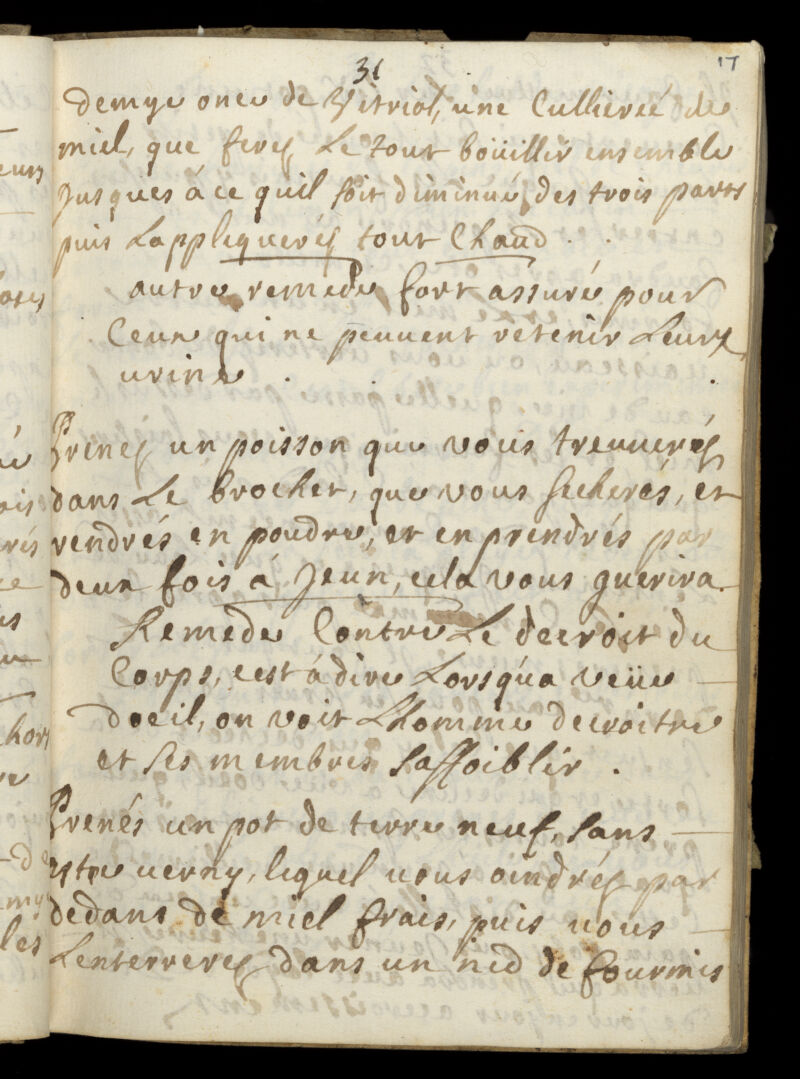 31
17
demye once de Vitriol, une Cullierée de
miel, que ferés Le tout boüillir ensemble
Jusques á ce quil soit diminué des trois parts
puis Lappliquerés tout Chaud.
autre remede fort ássuré pour
Ceux qui ne peuvent retenir Leurs
urine.
Prenés un poisson que vous treuuerés
dans Le brochet, que vous secherés, et
rendrés en poudre, et en prendrés par
deux fois á Jeun, cela vous guerira.
Remede Contre Le decroit du
Corps, cest ádire Lorsqu'a veüe
doeil, on voit Lhomme decroitre
et ses membres saffoiblir.
Prenés un pot de terre neuf, sans
estre uerny, lequel vous oindrés par
dedans de miel frais, puis vous
Lenterrerés dans un nid de fourmis